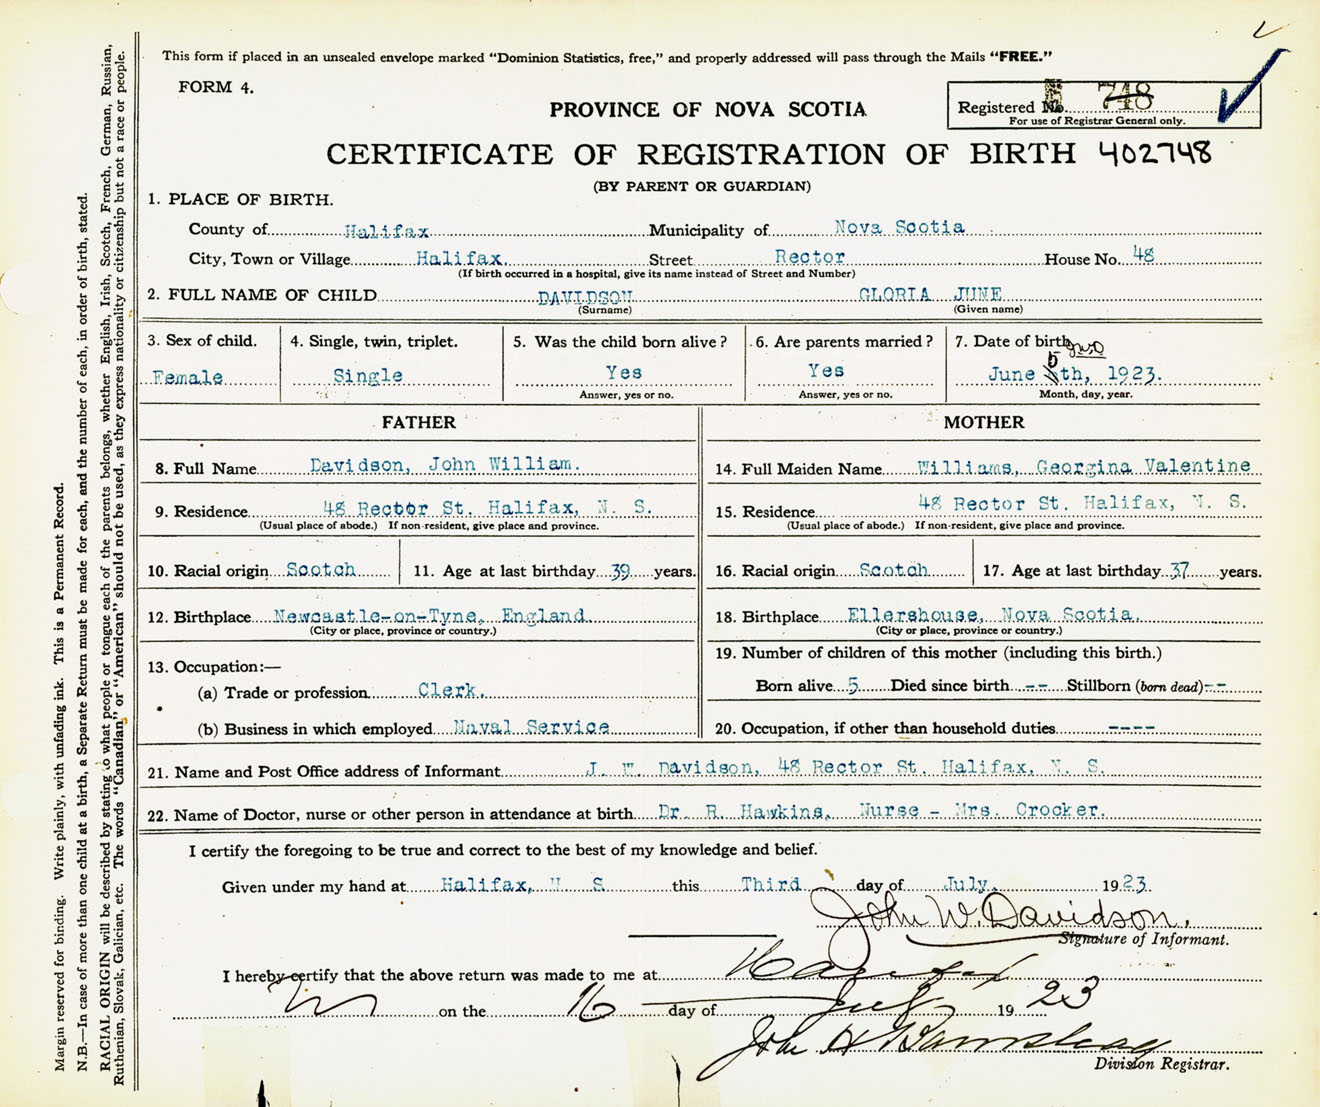 This form if placed in an unsealed envelope marked "Dominion Statistics, free," and properly addressed will pass through the Mails "FREE."
FORM 4.
Registered No. 748
For use of Registrar General only.
PROVINCE OF NOVA SCOTIA
CERTIFICATE OF REGISTRATION OF BIRTH 402748
(BY PARENT OR GUARDIAN)
1. PLACE OF BIRTH.
County of Halifax Municipality of Nova Scotia
City, Town or Village Halifax. Street Rector House No. 48
(If birth occurred in a hospital, give its name instead of Street and Number)
2. FULL NAME OF CHILD DAVIDSON GLORIA JUNE
(Surname) (Given name)
3. Sex of child. 4. Single, twin, triplet. 5. Was the child born alive? 6. Are parents married? 7. Date of birth
Female Single Yes Yes June 5th, 1923.
Answer, yes or no. Answer, yes or no. Month, day, year.
FATHER MOTHER
8. Full Name Davidson, John William. 14. Full Maiden Name Williams, Georgina Valentine
9. Residence 48 Rector St. Halifax, N. S. 15. Residence 48 Rector St. Halifax, N. S.
(Usual place of abode.) If non-resident, give place and province. (Usual place of abode.) If non-resident, give place and province.
10. Racial origin Scotch 11. Age at last birthday 39 years. 16. Racial origin Scotch 17. Age at last birthday 37 years.
12. Birthplace Newcastle-on-Tyne, England. 18. Birthplace Ellershouse, Nova Scotia.
(City or place, province or country.) (City or place, province or country.)
13. Occupation:— 19. Number of children of this mother (including this birth.)
(a) Trade or profession Clerk. Born alive 5 Died since birth -- Stillborn (born dead) --
(b) Business in which employed Naval Service 20. Occupation, if other than household duties ----
21. Name and Post Office address of Informant J. W. Davidson, 48 Rector St. Halifax, N. S.
22. Name of Doctor, nurse or other person in attendance at birth Dr. R. Hawkins, Nurse - Mrs. Crocker.
I certify the foregoing to be true and correct to the best of my knowledge and belief.
Given under my hand at Halifax, N S. this Third day of July. 1923.
John W. Davidson.
Signature of Informant.
I hereby certify that the above return was made to me at Halifax
on the 16 day of July 1923
John H Barnstead
Division Registrar.
Margin reserved for binding. Write plainly, with unfading ink. This is a Permanent Record.
N.B.—In case of more than one child at a birth, a Separate Return must be made for each, and the number of each, in order of birth, stated.
RACIAL ORIGIN will be described by stating to what people or tongue each of the parents belongs, whether English, Irish, Scotch, French, German, Russian,
Ruthenian, Slovak, Galician, etc. The words "Canadian," or "American" should not be used, as they express nationality or citizenship but not a race or people.